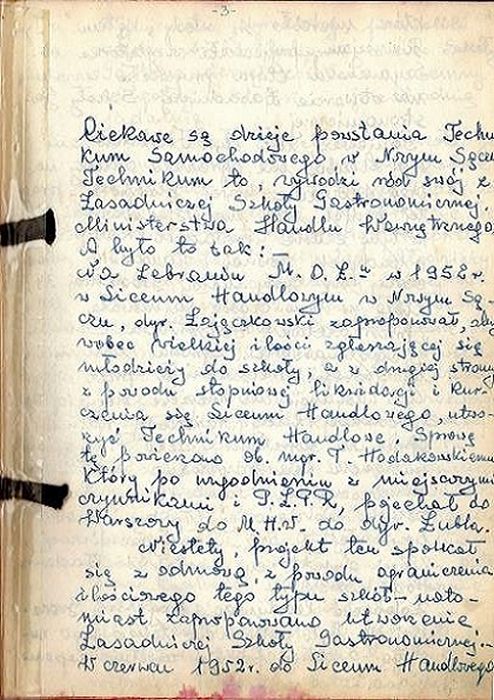 -3-
Ciekawe są dzieje powstania Techni
kum Samochodowego w Nowym Sączu
Technikum to, wywodzi ród swój z
Zasadniczej Szkoły Gastronomicznej.
Ministerstwa Handlu Wewnętrznego
A było to tak: -
Na Zebraniu M.O.Z." w 1952 r.
w Liceum Handlowym w Nowym Są-
czu, dyr. Zajączkowski zaproponował, aby
wobec wielkiej ilości zgłaszającej się
młodzieży do szkoły, a z drugiej strony
z powodu stopniowej likwidacji i kur-
czenia się Liceum Handlowego, utwo-
rzyć Technikum Handlowe. Sprawę
tę powierzono ob. mgr. T. Hodakowskiemu
Który po uzgodnieniu z miejscowymi
czynnikami i P.Z.P.R, pojechał do
Warszawy do M.H.W. do dyr. Zubla.
Niestety, projekt ten spotkał
się z odmową, z powodu ograniczenia
ilościowego tego typu szkół - nato-
miast zaproponowano utworzenie
Zasadniczej Szkoły Gastronomicznej.-
W czerwcu 1952 r. do Liceum Handlowego